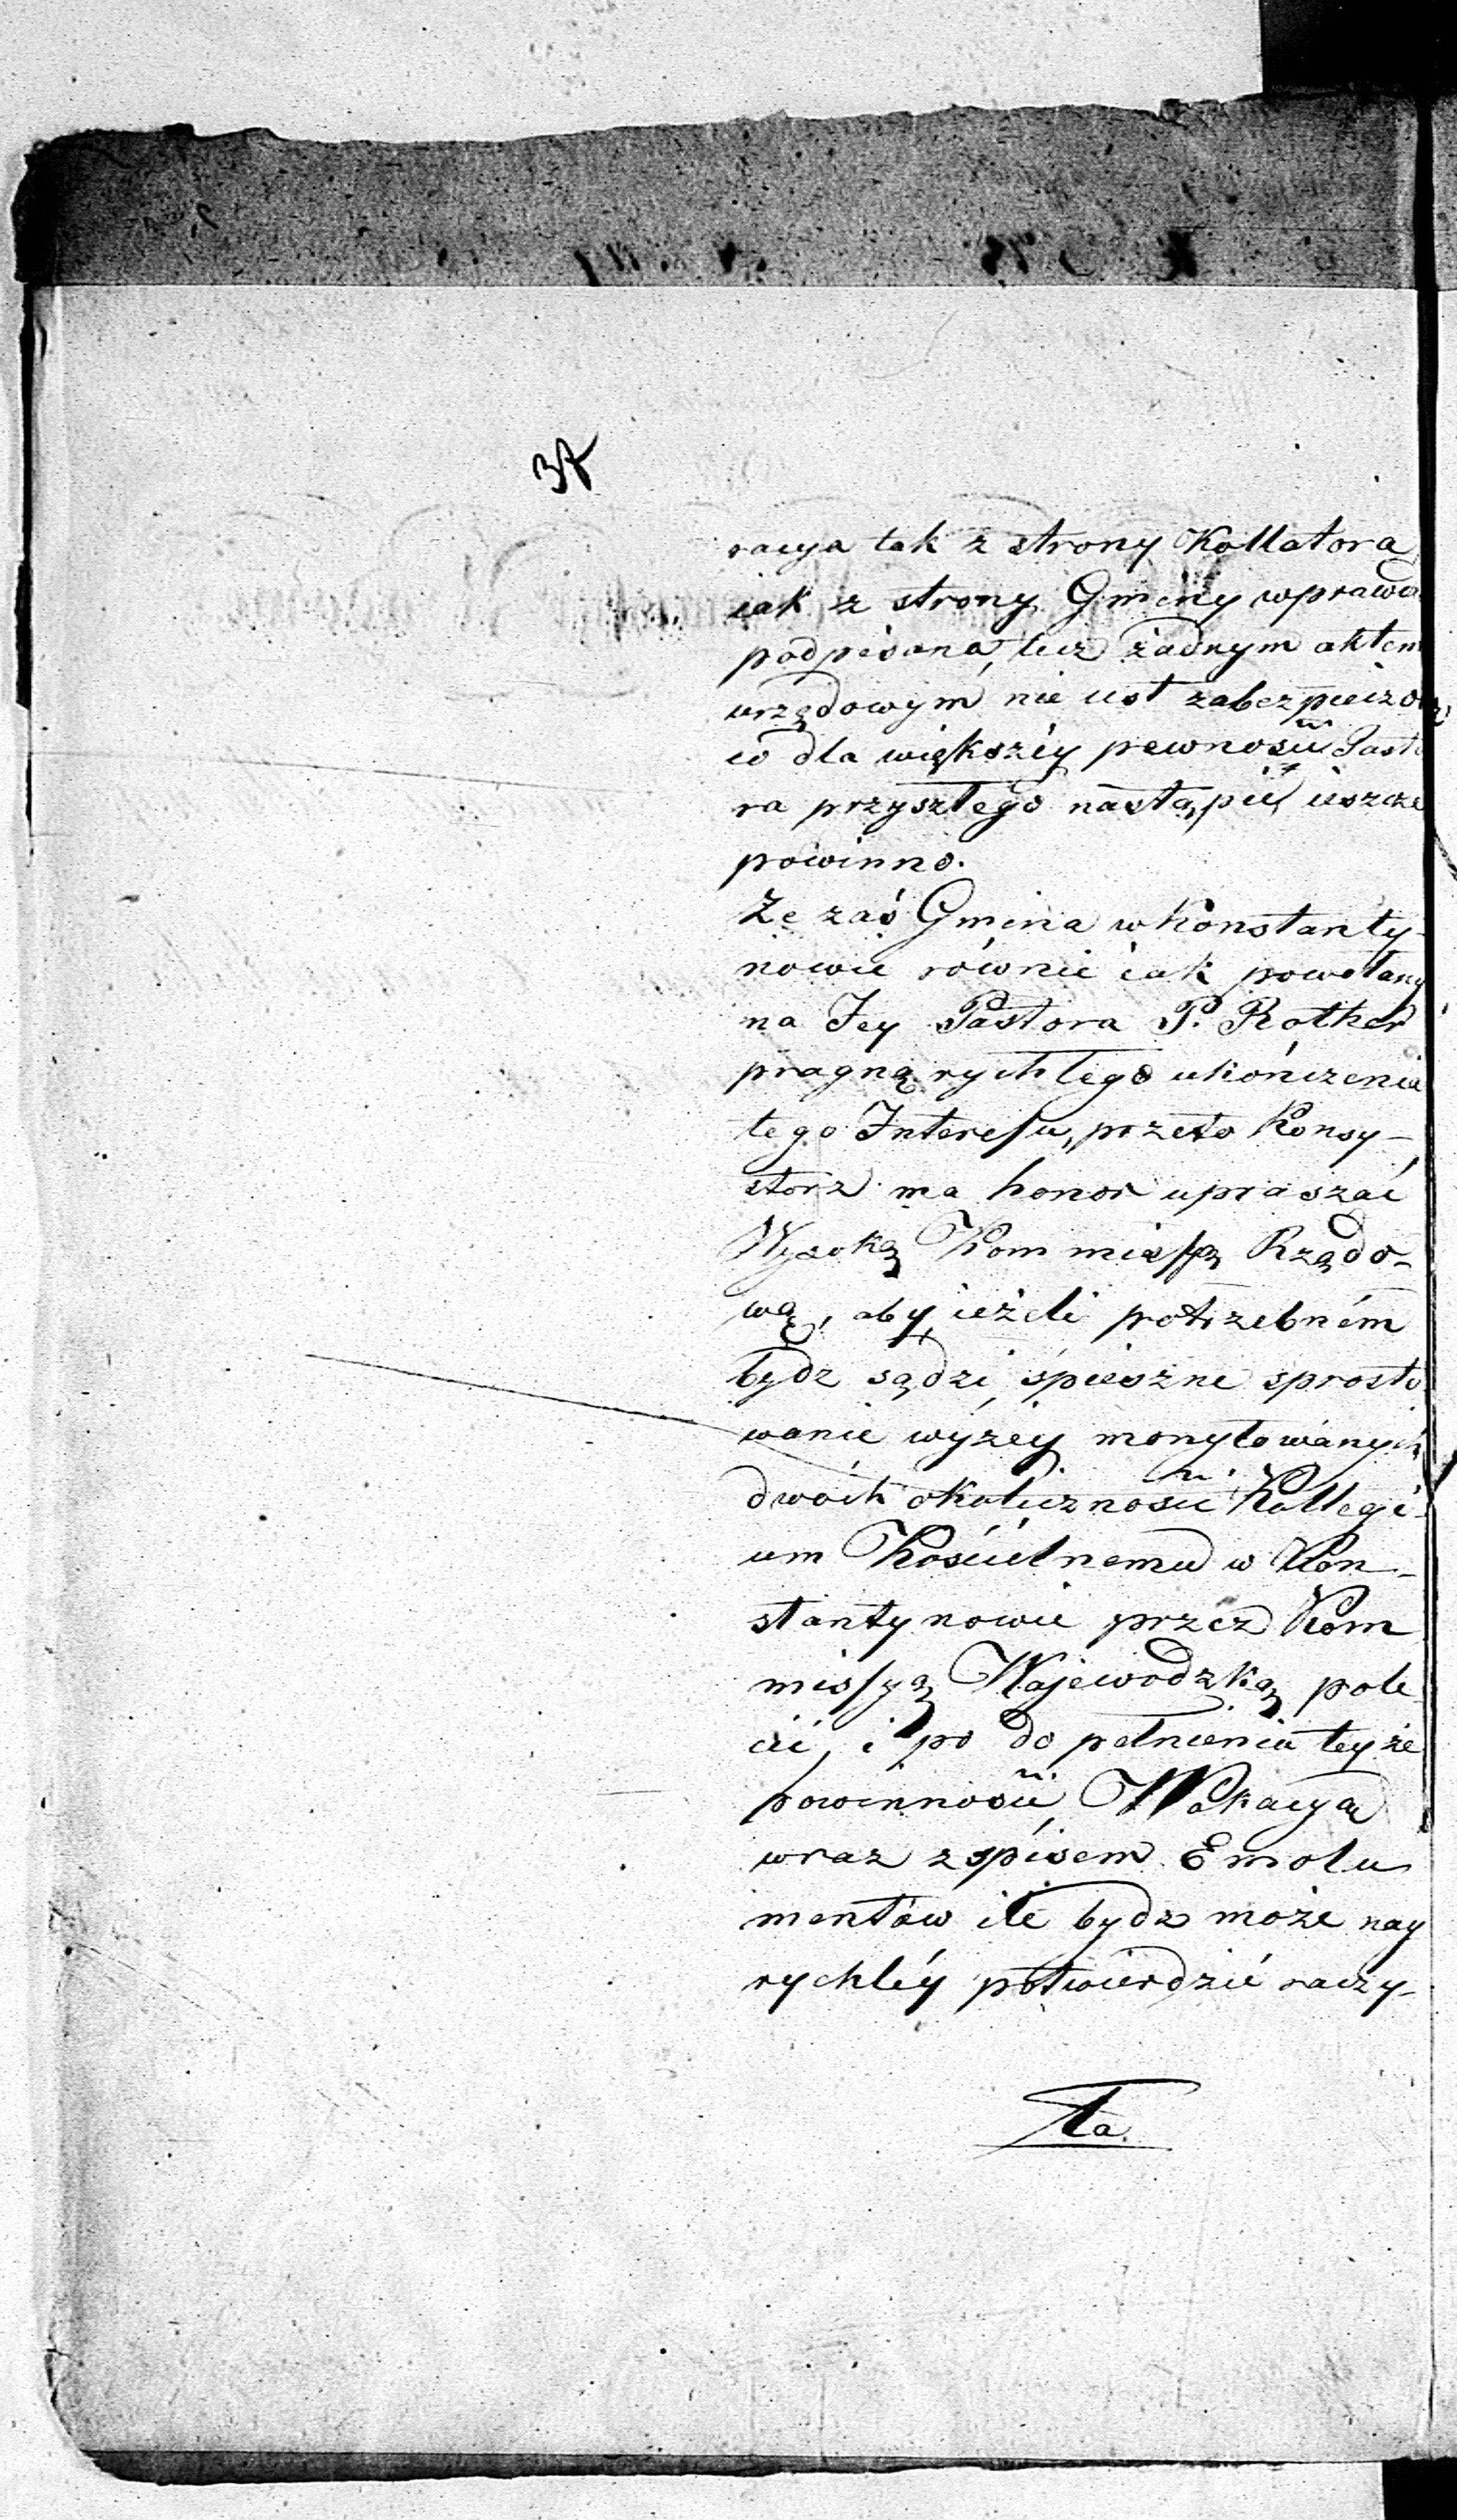 racya tak z strony Kollatora
iak z strony Gminy wprawd
podpisana, lecz żadnym aktem
urzędowym nie iest zabezpieczo
co dla większéy pewności Pasto
ra przyszłego nastąpić ieszcze
powinno.
Że zaś Gmina w Konstanty-
nowie równie iak powołany
na Jey Pastora P. Rother
pragną rychłego ukończenia
tego Interesu, przeto Konsy-
storz ma honor upraszać
Wysoką Kommissyą Rządo-
wą, aby ieżeli potrzebném
bydz sądzi, śpieszne sprosto
wanie wyżéy monytowanych
dwóch okoliczności Kollegi-
um Kościelnemu w Kon-
stantynowie przez Kom
missyą Wojewodzką pole
cić, i po dopełnieniu teyże
powinności, Wokacyą
wraz z spisem Emolu
mentów ile bydz może nay
rychléy potwierdzić raczy-
ła.